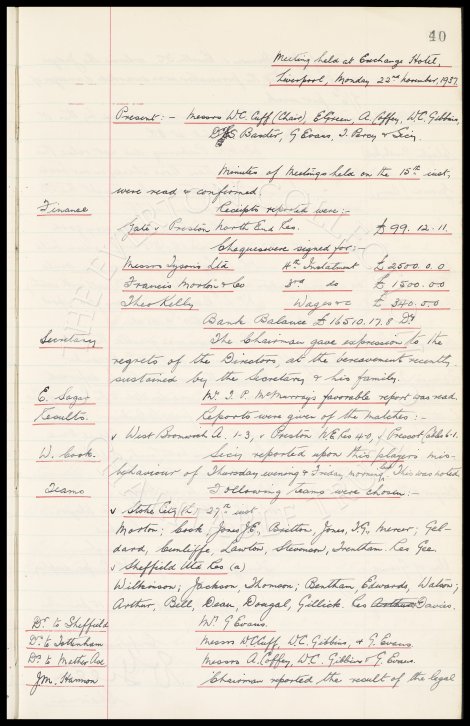 40
Meeting held at Exchange Hotel,
Liverpool, Monday 22nd November, 1937.
Present :- Messrs W.C. Cuff (Chair), E. Green, A. Coffey, W.C. Gibbins,
Dr C.S. Baxter, G Evans, T. Percy & Secy.
Minutes of Meetings held on the 15th inst,
were read & confirmed.
Finance
Receipts reported were :-
Gate v Preston North End Res. £ 99. 12. 11.
Cheques were signed for :-
Messrs Tysons Ltd 4th Instalment £ 2500. 0. 0
Francis Morton & Co 3rd do £ 1500. 0. 0
Theo Kelly Wages &c £ 340. 0. 0
Bank Balance £ 16510. 17. 8 Dr
Secretary
The Chairman gave expression to the
regrets of the Directors, at the bereavement recently
sustained by the Secretary & his family.
E. Sagar
Mr. I. P. McMurrays favorable report was read.
Results.
Reports were given of the matches :-
v West Bromwich A. 1-3, v Preston N E Res 4-0, v Prescot Cables 6-1.
W. Cook.
Secy reported upon this players mis-
behaviour of Thursday evening & Friday morning last. This was noted.
Teams
Following teams were chosen :-
v Stoke City (H.) 27th inst
Morton; Cook, Jones J.E., Britton, Jones, T.G., Mercer; Gel-
dard, Cunliffe, Lawton, Stevenson, Trentham. Res Gee.
v Sheffield Utd Res (a)
Wilkinson; Jackson, Thomson; Bentham, Edwards, Watson;
Arthur, Bell, Dean, Dougal, Gillick. Res Arthur Davies.
Dr. to Sheffield
Mr G Evans.
Dr. to Tottenham
Messrs W Cuff, W.C. Gibbins, & G. Evans.
Messrs A. Coffey, W.C. Gibbins & G. Evans.
J.M. Harmon
Chairman reported the result of the legal